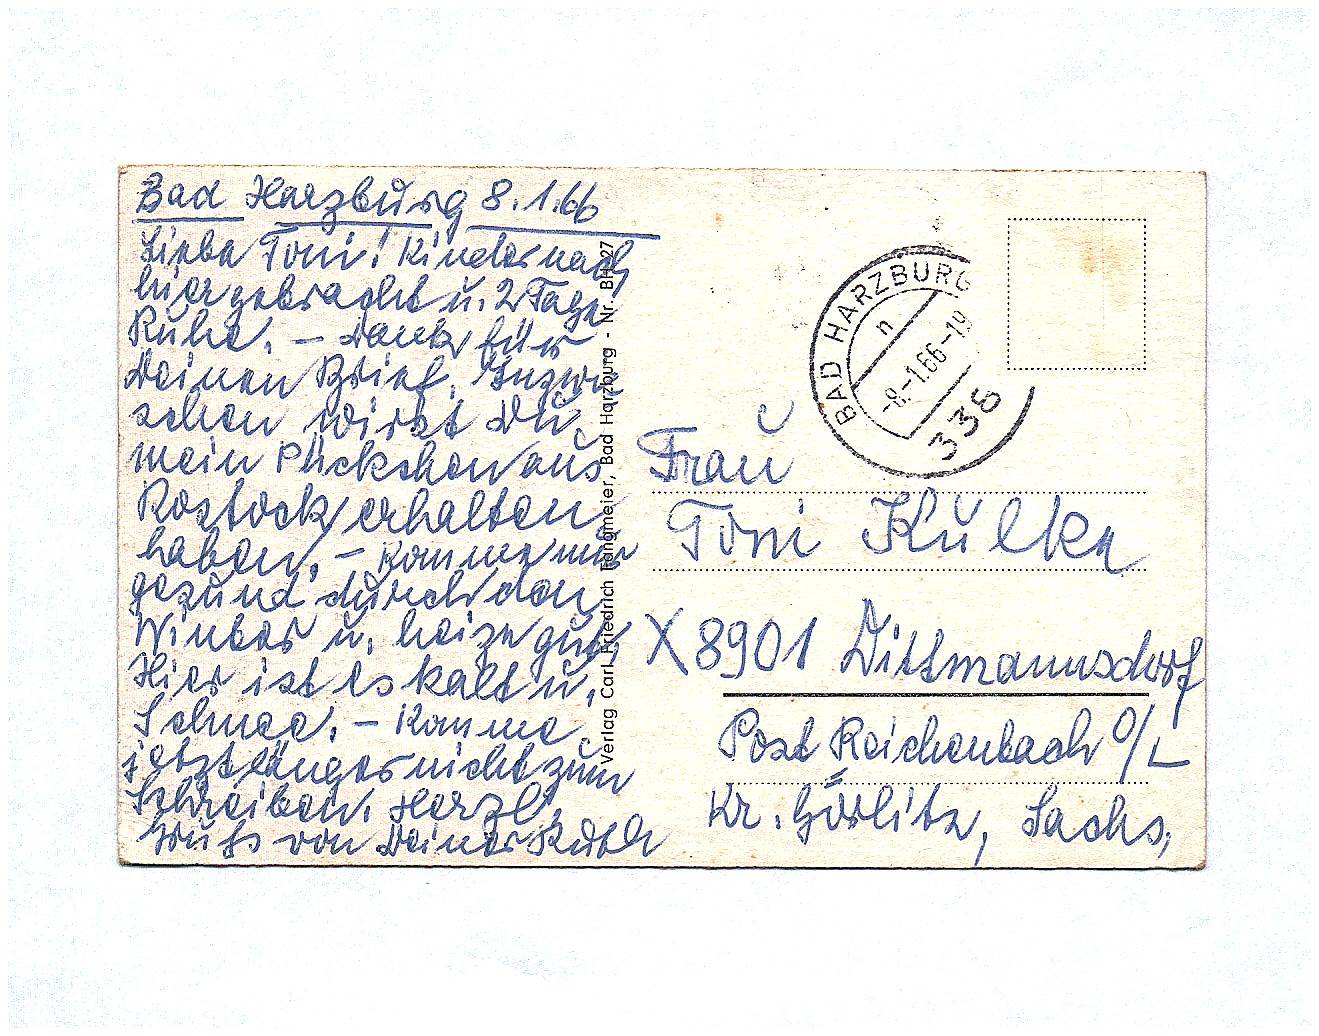 Bad Harzburg 8.1.66
Liebe Toni! Kinder nach
hier gebracht u. 2 Tage
Ruhe. – Dank für
Deinen Brief. Inzwi
schen wirst Du
mein Päckchen aus
Rostock erhalten
haben. – Komme nur
gesund durch den
Winter u. heize gut.
Hier ist es kalt u.
Schnee. – Komme
jetzt länger nicht zum
Schreiben. Herzl.
Gruß von Deiner Ruth
Verlag Carl Friedrich Fangmeier, Bad Harzburg - Nr. BH 27
BAD HARZBURG
n
-8.-1.66-19
338
Frau
Toni Kulke
X 8901 Dittmannsdorf
Post Reichenbach O/L
Kr. Görlitz, Sachs.